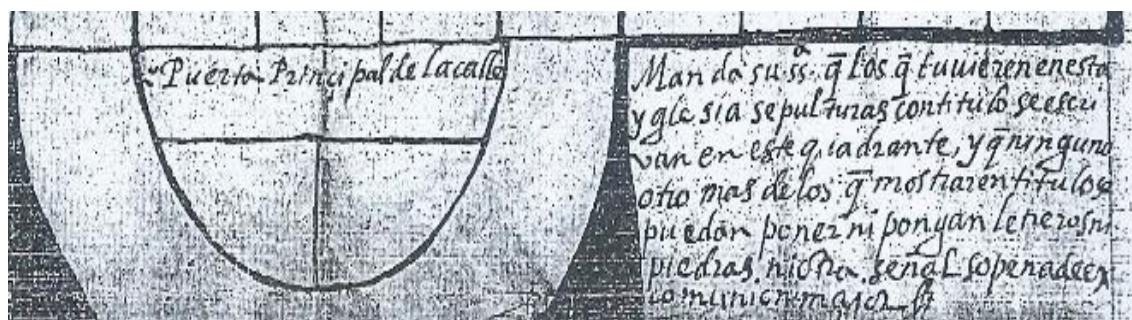 Puerta Principal de la calle
Manda su sª q̄ los q̄ tuuieren en esta
ygle sia sepulturas con titulo se escri
van en este quadrante, y q̄ ninguno
otro mas de los q̄ mostraren titulos
puedan poner ni pongan letreros ni
piedras ni otra señal so pena de ex
comunion major